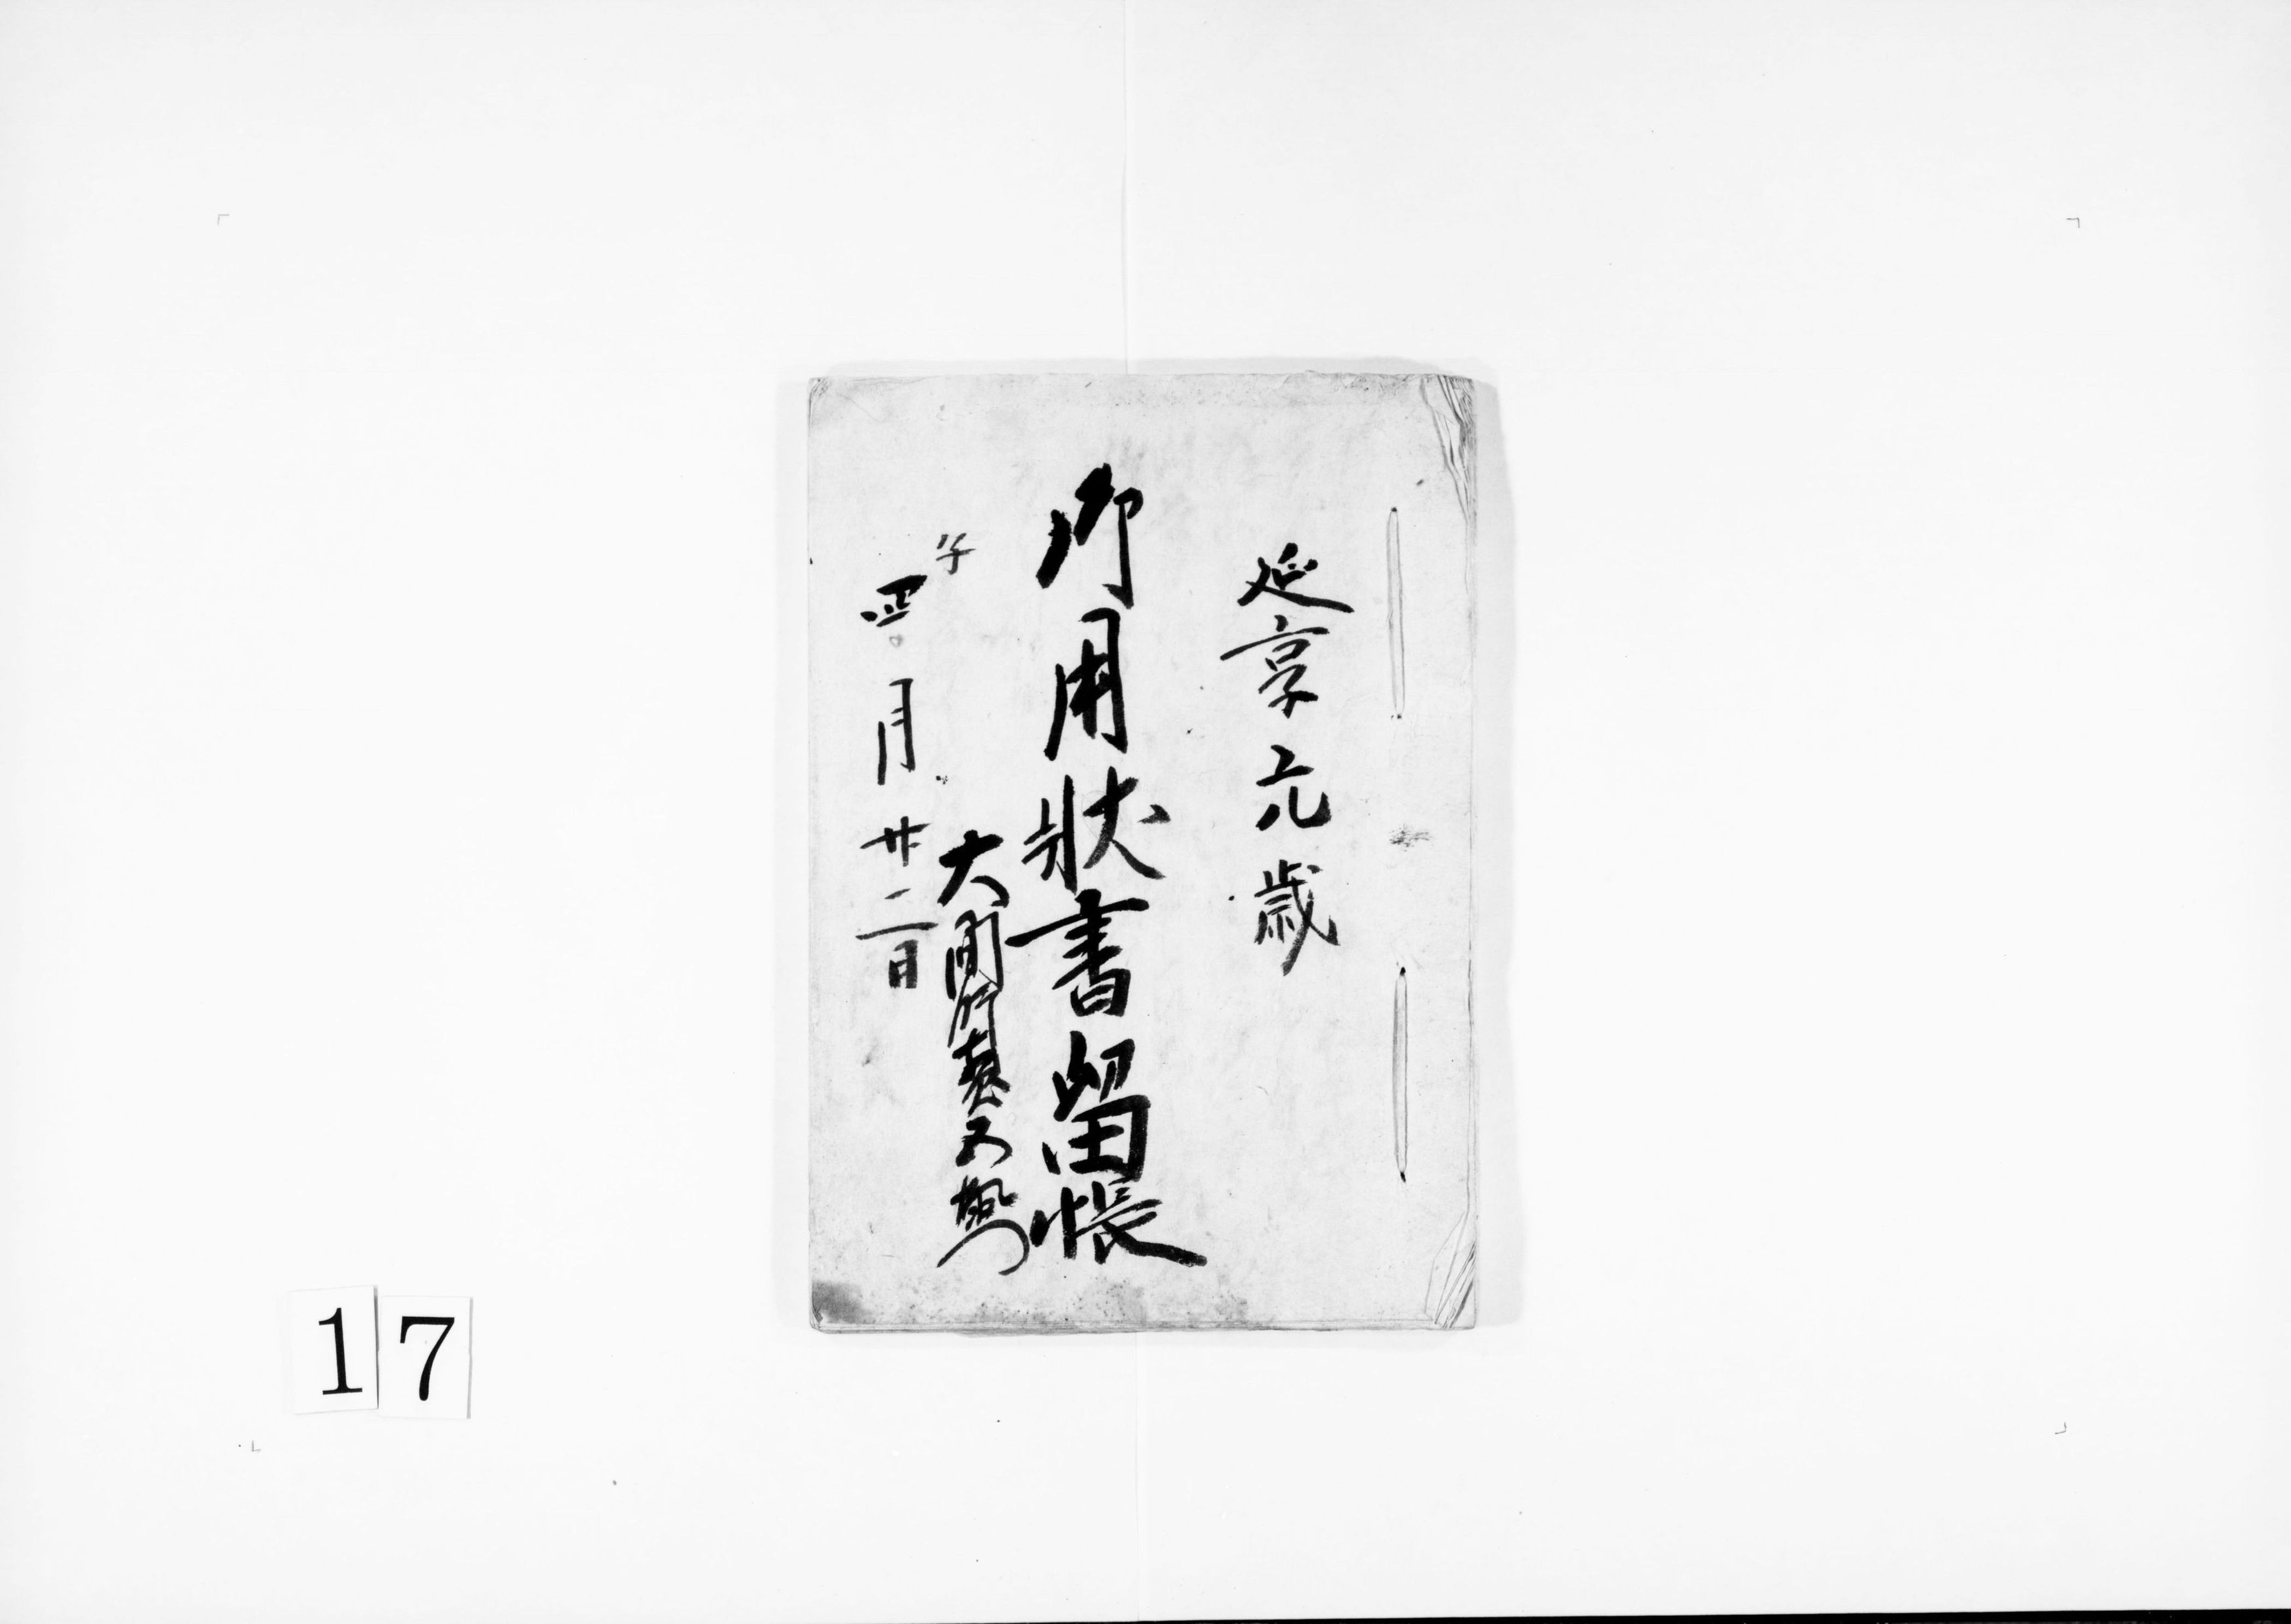 延享元歳
御用状書留帳
大間
子
四月廿二日
17